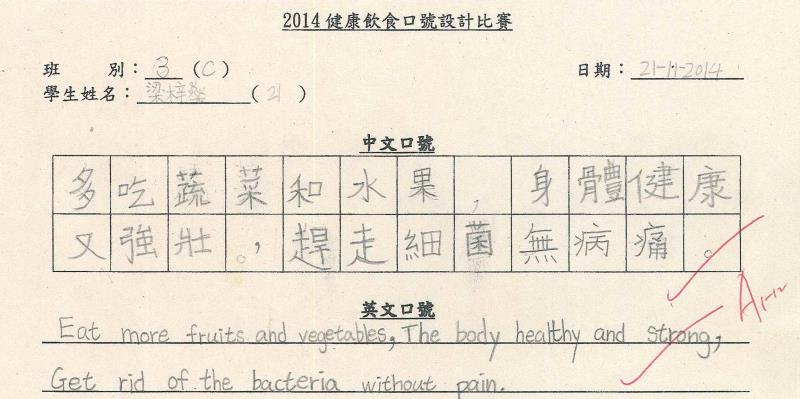 2014健康飲食口號設計比賽
班 別：3 (C) 日期：21-11-2014
學生姓名：梁梓燊 (21)
中文口號
多吃蔬菜和水果，身體健康
又強壯，趕走細菌無病痛。
英文口號
Eat more fruits and vegetables, The body healthy and strong,
Get rid of the bacteria without pain.
A